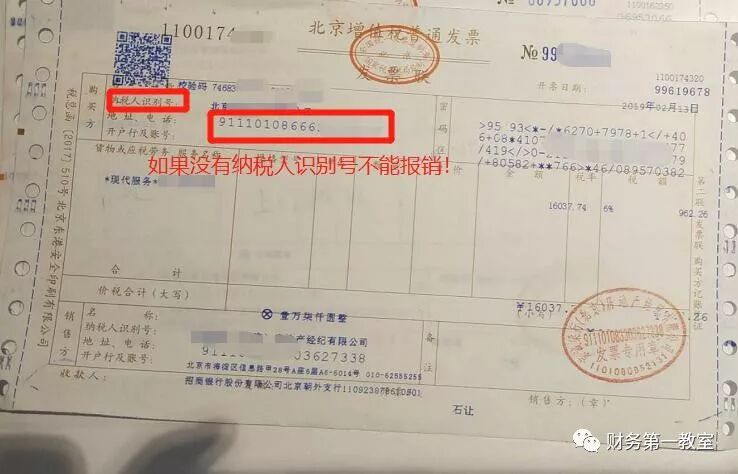 1100174320
北京增值税普通发票
发票联
№99
1100174320
99619678
校验码 74683
开票日期：
2019年02月13日
购买方
纳税人识别号：
91110108666
地址、电话：
开户行及账号：
密码区
>95 93<*-/*6270+7978+1</+40
6+08*4107
/419</>0-
+80582+**766>*46/089570382
货物或应税劳务、服务名称
金额
税率
税额
如果没有纳税人识别号不能报销！
*现代服务*
16037.74
6%
962.26
合计
¥16037.
价税合计（大写）
⊗壹万柒仟圆整
（小写）
销售方
名称：
纳税人识别号：
产经纪有限公司
9111
03627338
地址、电话：
北京市海淀区信息路甲28号A座6层A6-6014号 010-62555255
开户行及账号：
招商银行股份有限公司北京朝外支行
备注
发票专用章
收款人：
石让
销售方：（章）
税总函〔2017〕510号北京东港安全印刷有限公司
第二联：发票联 购买方记账凭证
财务第一教室